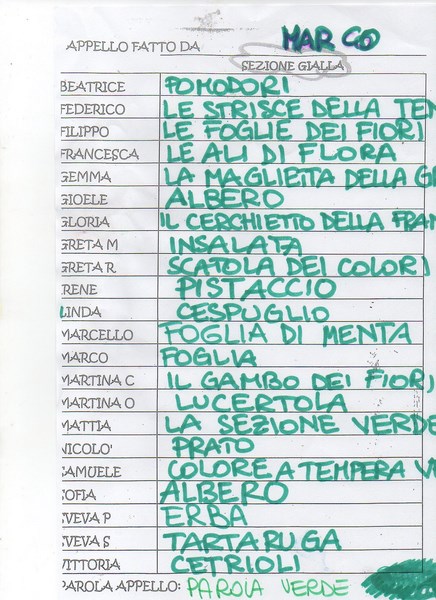 APPELLO FATTO DA MARCO
SEZIONE GIALLA
BEATRICE POMODORI
FEDERICO LE STRISCE DELLA TEN
FILIPPO LE FOGLIE DEI FIORI
FRANCESCA LE ALI DI FLORA
GEMMA LA MAGLIETTA DELLA GR
GIOELE ALBERO
GLORIA IL CERCHIETTO DELLA FRAN
GRETA M INSALATA
GRETA R SCATOLA DEI COLORI
IRENE PISTACCIO
LINDA CESPUGLIO
MARCELLO FOGLIA DI MENTA
MARCO FOGLIA
MARTINA C IL GAMBO DEI FIORI
MARTINA O LUCERTOLA
MATTIA LA SEZIONE VERDE
NICOLO' PRATO
SAMUELE COLORE A TEMPERA V
SOFIA ALBERO
SVEVA P ERBA
SVEVA S TARTARUGA
VITTORIA CETRIOLI
PAROLA APPELLO: PAROLA VERDE